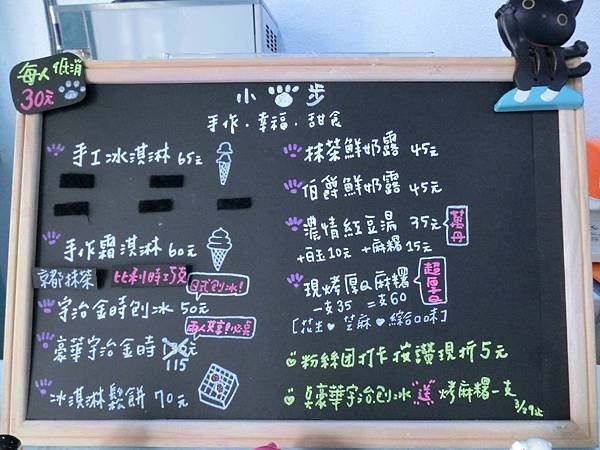 每人低消
30元
小 步
手作.幸福.甜食
手工冰淇淋 65元
手作霜淇淋 60元
京都抹茶 比利時巧克
日式刨冰!
宇治金時刨冰 50元
兩人共享!必點
豪華宇治金時 元
115
冰淇淋鬆餅 70元
抹茶鮮奶露 45元
伯爵鮮奶露 45元
濃情紅豆湯 35元
萬丹
+白玉10元 +麻糬15元
現烤厚Q麻糬
超厚Q
一支35 二支60
[花生♥芝麻♥綜合口味]
粉絲團打卡按讚現折5元
點豪華宇治刨冰 送 烤麻糬一支
3/29止